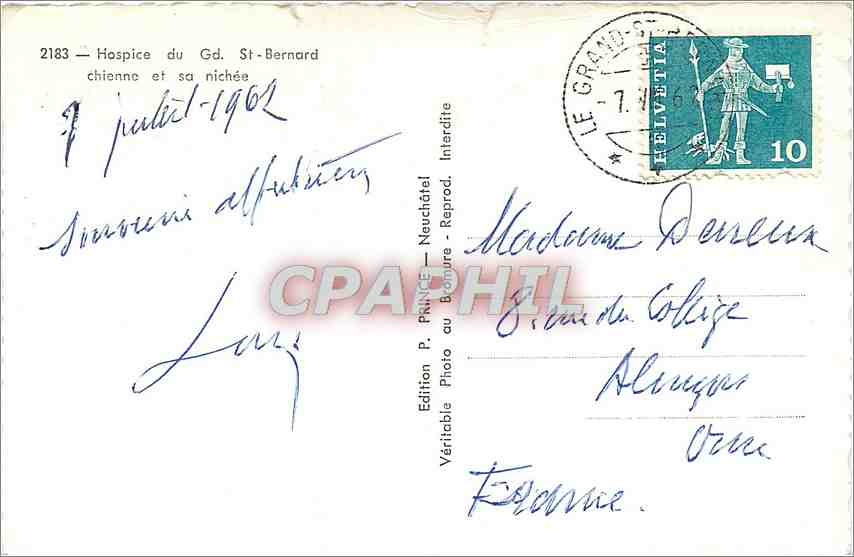 2183 — Hospice du Gd. St-Bernard
chienne et sa nichée
7 juillet-1962
Souvenir affectueux
Edition P. PRINCE — Neuchâtel
Véritable Photo au Bromure - Reprod. Interdite
CPAPHIL
LE GRAND-ST-BERNARD
7. VII 62
HELVETIA
10
Madame
8, rue du Collège
Alençon
Orne
France.